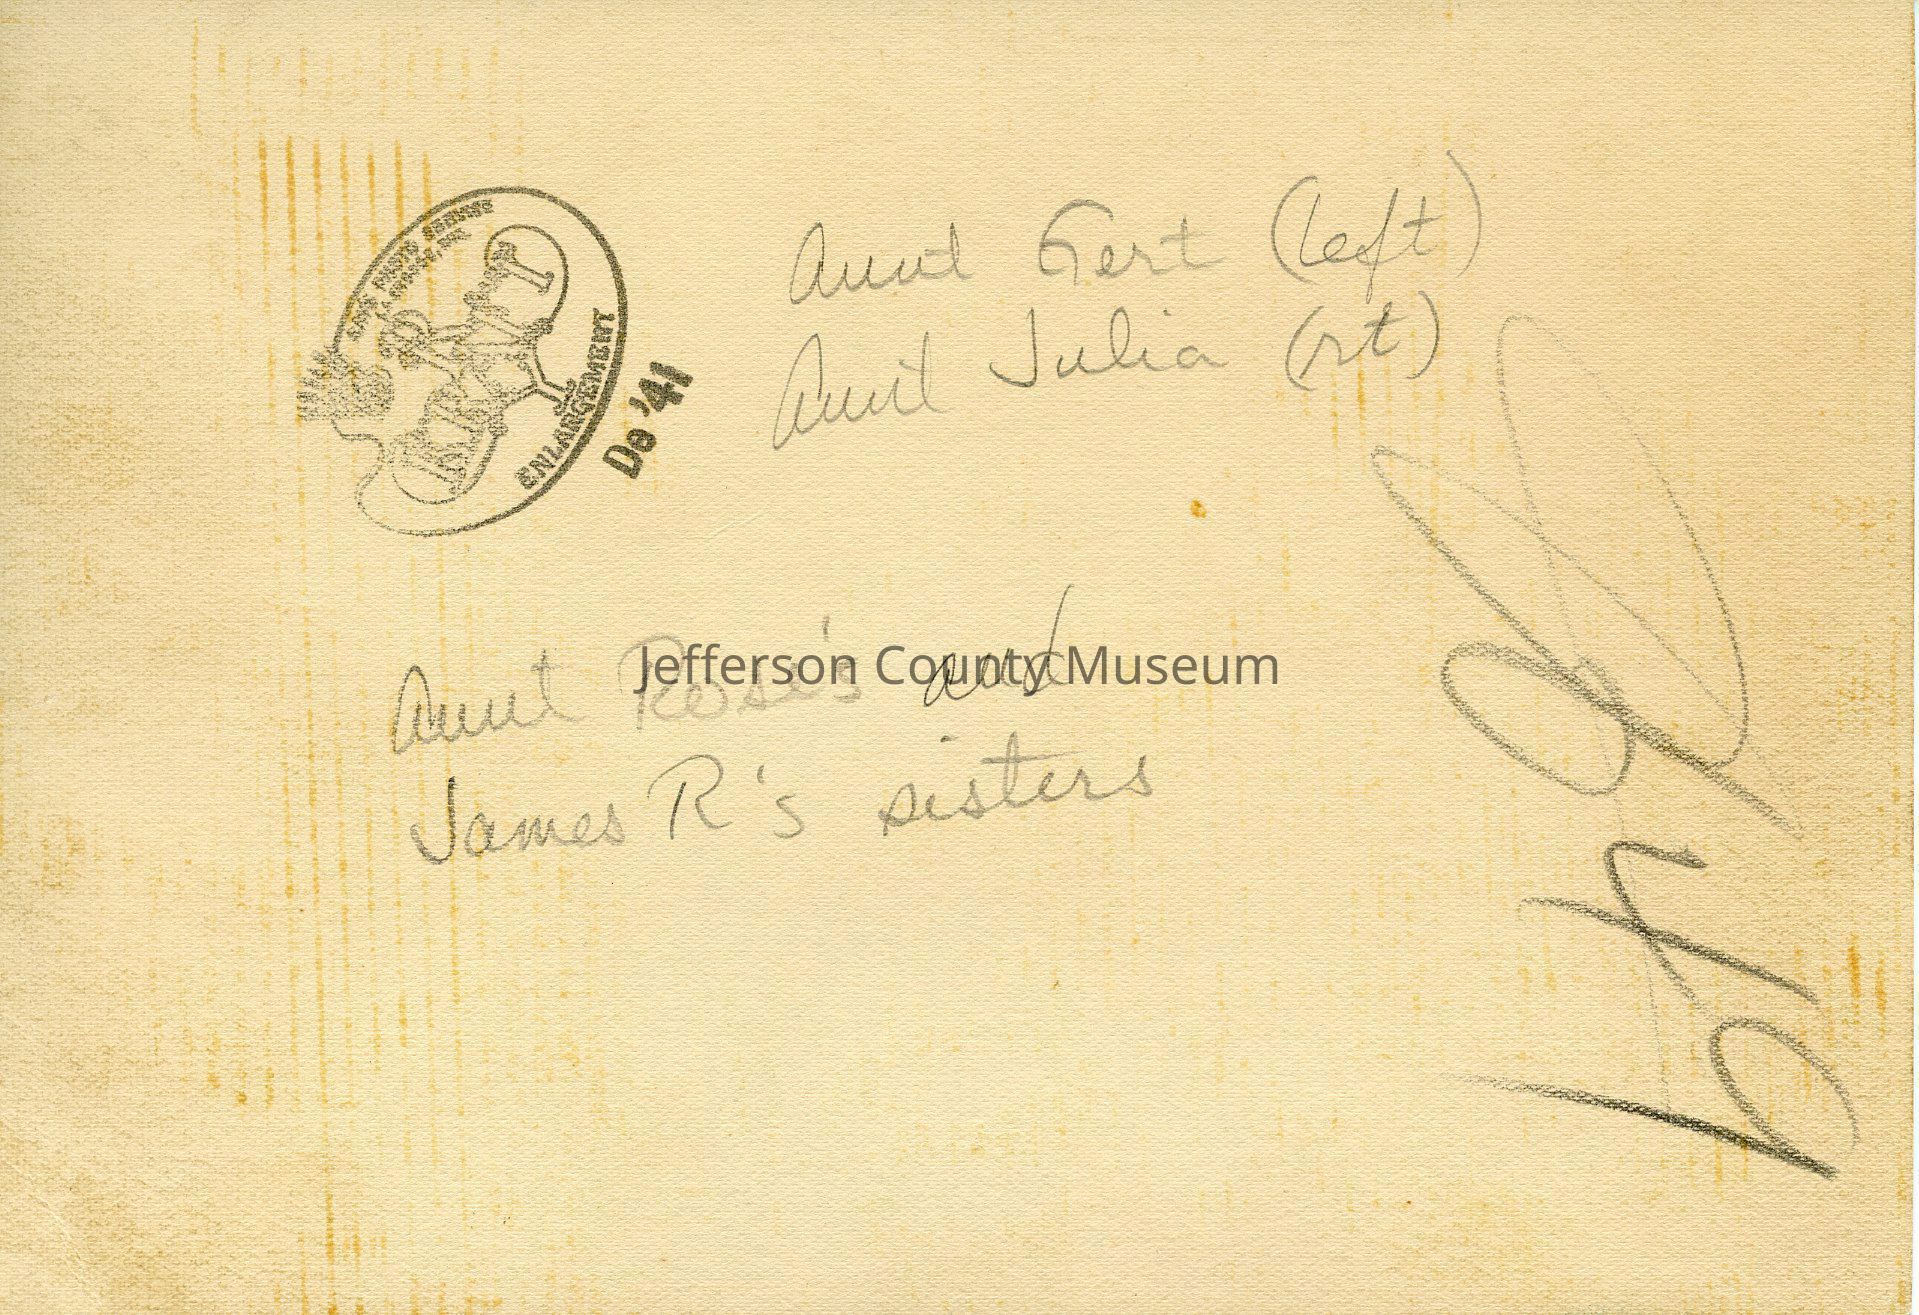 Aunt Gert (left)
Aunt Julia (rt)
PHOTO SERVICE
LA CROSSE, WIS.
ENLARGEMENT
De '41
Jefferson County Museum
Aunt Rose's and
James R's sisters